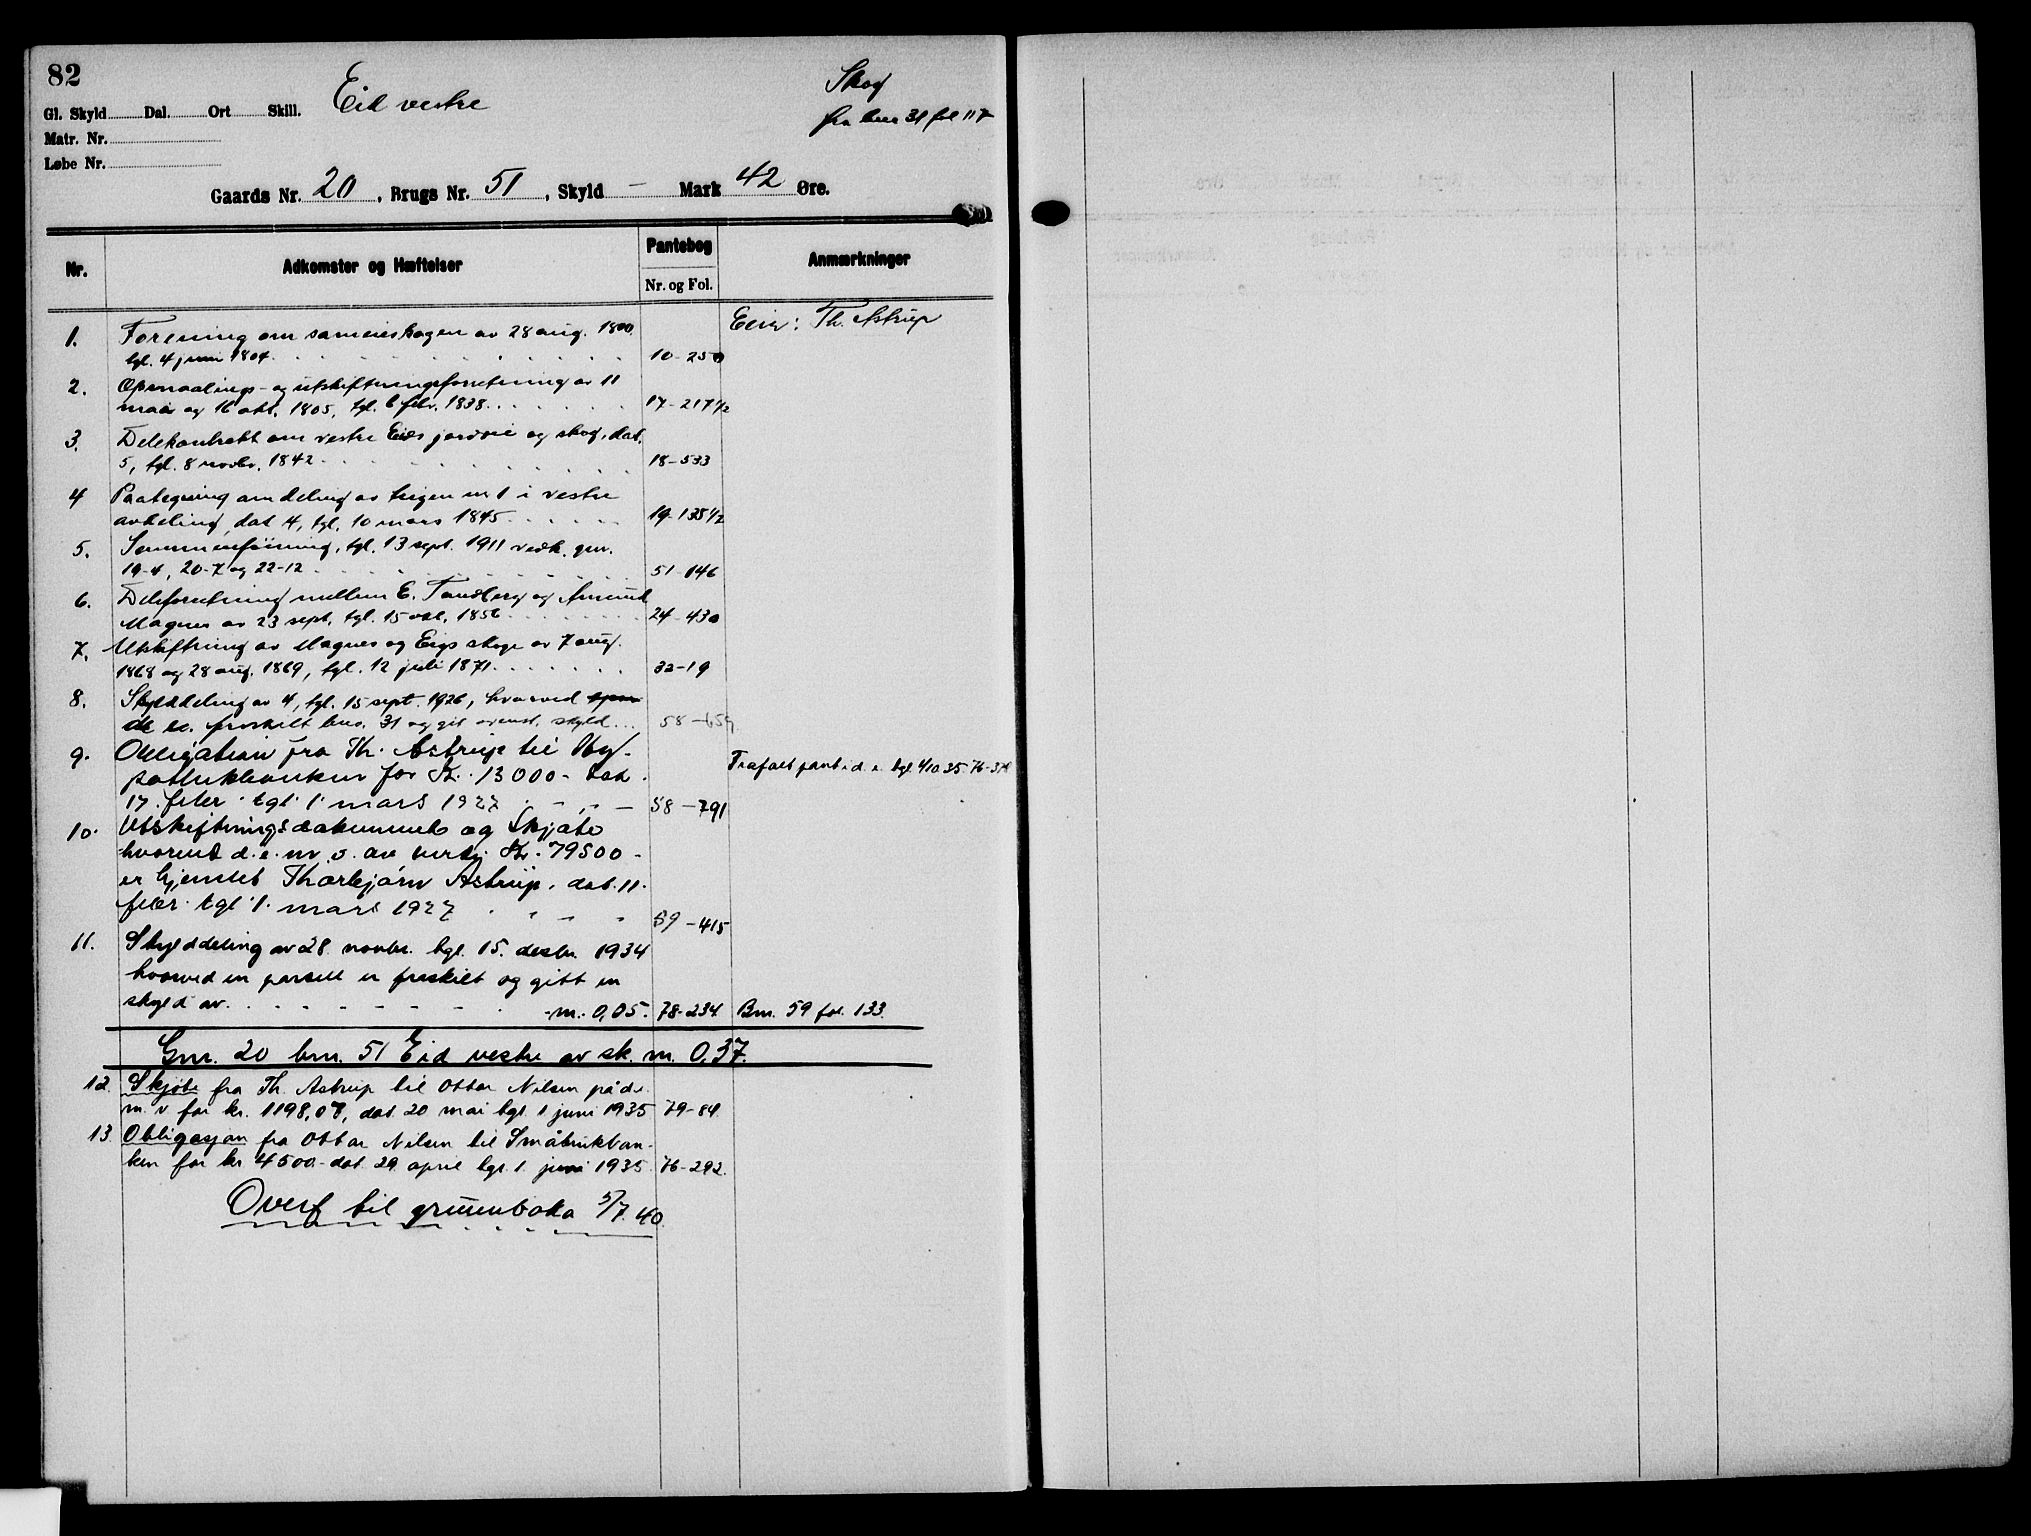 82
Eid vestre
Skog
fra bnr 31 fol 117
Gl. Skyld Dal. Ort Skill.
Matr. Nr.
Løbe Nr.
Gaards Nr. 20, Brugs Nr. 51, Skyld - Mark 42 Øre.
Nr. Adkomster og Hæftelser Pantebog Nr. og Fol. Anmærkninger
Eier: Th. Astrup
1. Forening om sameieskogen av 28 aug. 1800.
tgl. 4 juni 1804. 10-250
2. Opmaalings- og utskiftningsforretning av 11
mai og 16 okt. 1805, tgl. 6 febr. 1838. 17-217 1/2
3. Delekontrakt om vestre Eids jordvei og skog, dat.
5, tgl. 8 novbr. 1842. 18-533
4 Paategning om deling av teigen nr 1 i vestre
avdeling, dat 4, tgl. 10 mars 1845. 19-135 1/2
5. Sammenføining, tgl. 13 sept. 1911 vedk. gnr.
19-4, 20-7 og 22-12 51-146
6. Deleforretning mellem E. Tandberg og Amund
Magnes av 23 sept, tgl. 15 okt. 1856 24-430
7. Utskiftning av Magnes og Eigs skoge av 7 aug.
1868 og 28 aug. 1869, tgl. 12 juli 1871. 32-19
8. Skylddeling av 4, tgl. 15 sept. 1926, hvorved
de er fraskilt bno. 31 og git ovenst. skyld... 58-659
9. Obligation fra Th. Astrup til Hy-
potekbanken for Kr. 13000- dat.
17. febr. tgl. 1. mars 1927 58-791
Frafalt pant i d. e. tgl. 4/10 35. 76-
10. Utskiftningsdokument og Skjøte
hvorved d. e. m. v. av verdi Kr. 79500-
er hjemlet Thorbjørn Astrup, dat. 11.
febr. tgl. 1. mars 1927 59-415
11. Skylddeling av 28. novbr. tgl. 15. desbr. 1934
hvorved en parsell er fraskilt og gitt en
skyld av m. 0,05. 78-234 Bnr. 59 fol. 133.
Gnr. 20 bnr. 51 Eid vestre av sk. m. 0,37.
12. Skjøte fra Th. Astrup til Ottar Nilsen på d.e.
m. v for kr. 1198,07, dat. 20 mai tgl. 1 juni 1935 79-84.
13. Obligasjon fra Ottar Nilsen til Småbrukban-
ken for kr 4500.- dat. 29. april tgl. 1. juni 1935 76-292.
Overf. til grunnboka 5/7. 40.